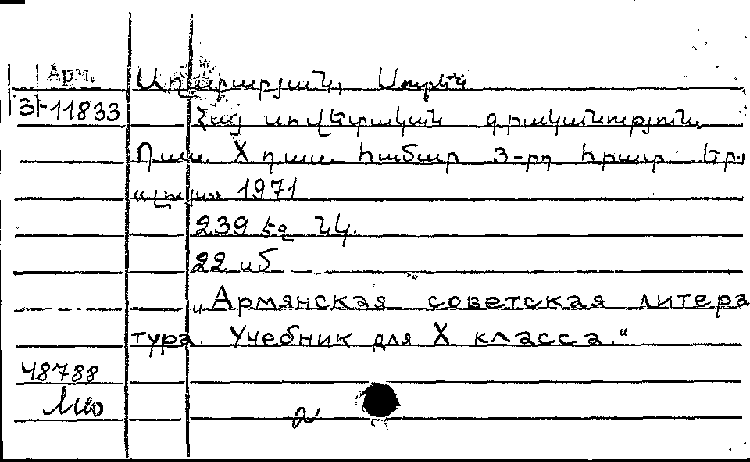 Арм.
Աղաբաբյան, Սուրեն
3-11833
Հայ սովետական գրականություն.
Դաս. X դաս. համար 3-րդ հրատ. Եր.,
«Լույս» 1971
239 էջ նկ.
22 սմ
„Армянская советская литера
тура. Учебник для X класса.“
48788